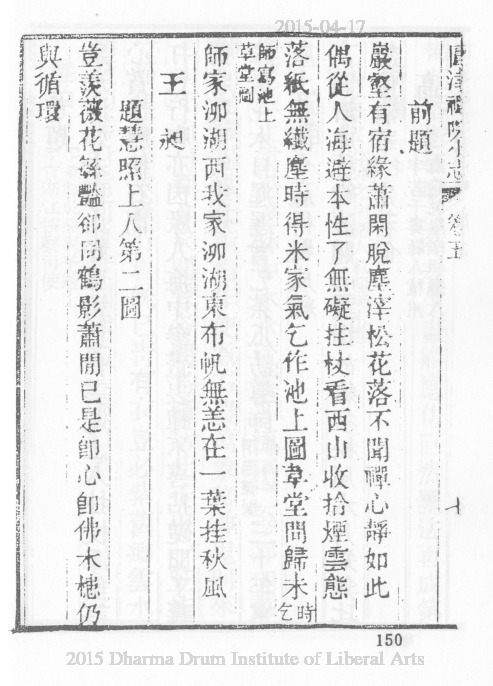 2015-04-17
圓津禪院小志 卷五 十
前題
巖壑有宿緣蕭閑脫塵滓松花落不聞禪心靜如此
偶從人海遊本性了無礙挂杖看西山收拾煙雲態
落紙無纖塵時得米家氣乞作池上圖草堂問歸未時乞
師寫池上
草堂圖
師家泖湖西我家泖湖東布帆無恙在一葉挂秋風
王 昶
題慧照上人第二圖
豈羨薇花綠豔卻同鶴影蕭閒已是卽心卽佛木樨仍
與循環
150
2015 Dharma Drum Institute of Liberal Arts